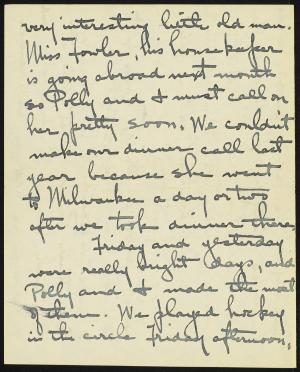 very interesting little old man.
Miss Fowler, his housekeeper
is going abroad next month
so Polly and I must call on
her pretty soon. We couldn't
make our dinner call last
year because she went
to Milwaukee a day or two
after we took dinner there.
Friday and yesterday
were really bright days, and
Polly and I made the most
of them. We played hockey
in the circle Friday afternoon,